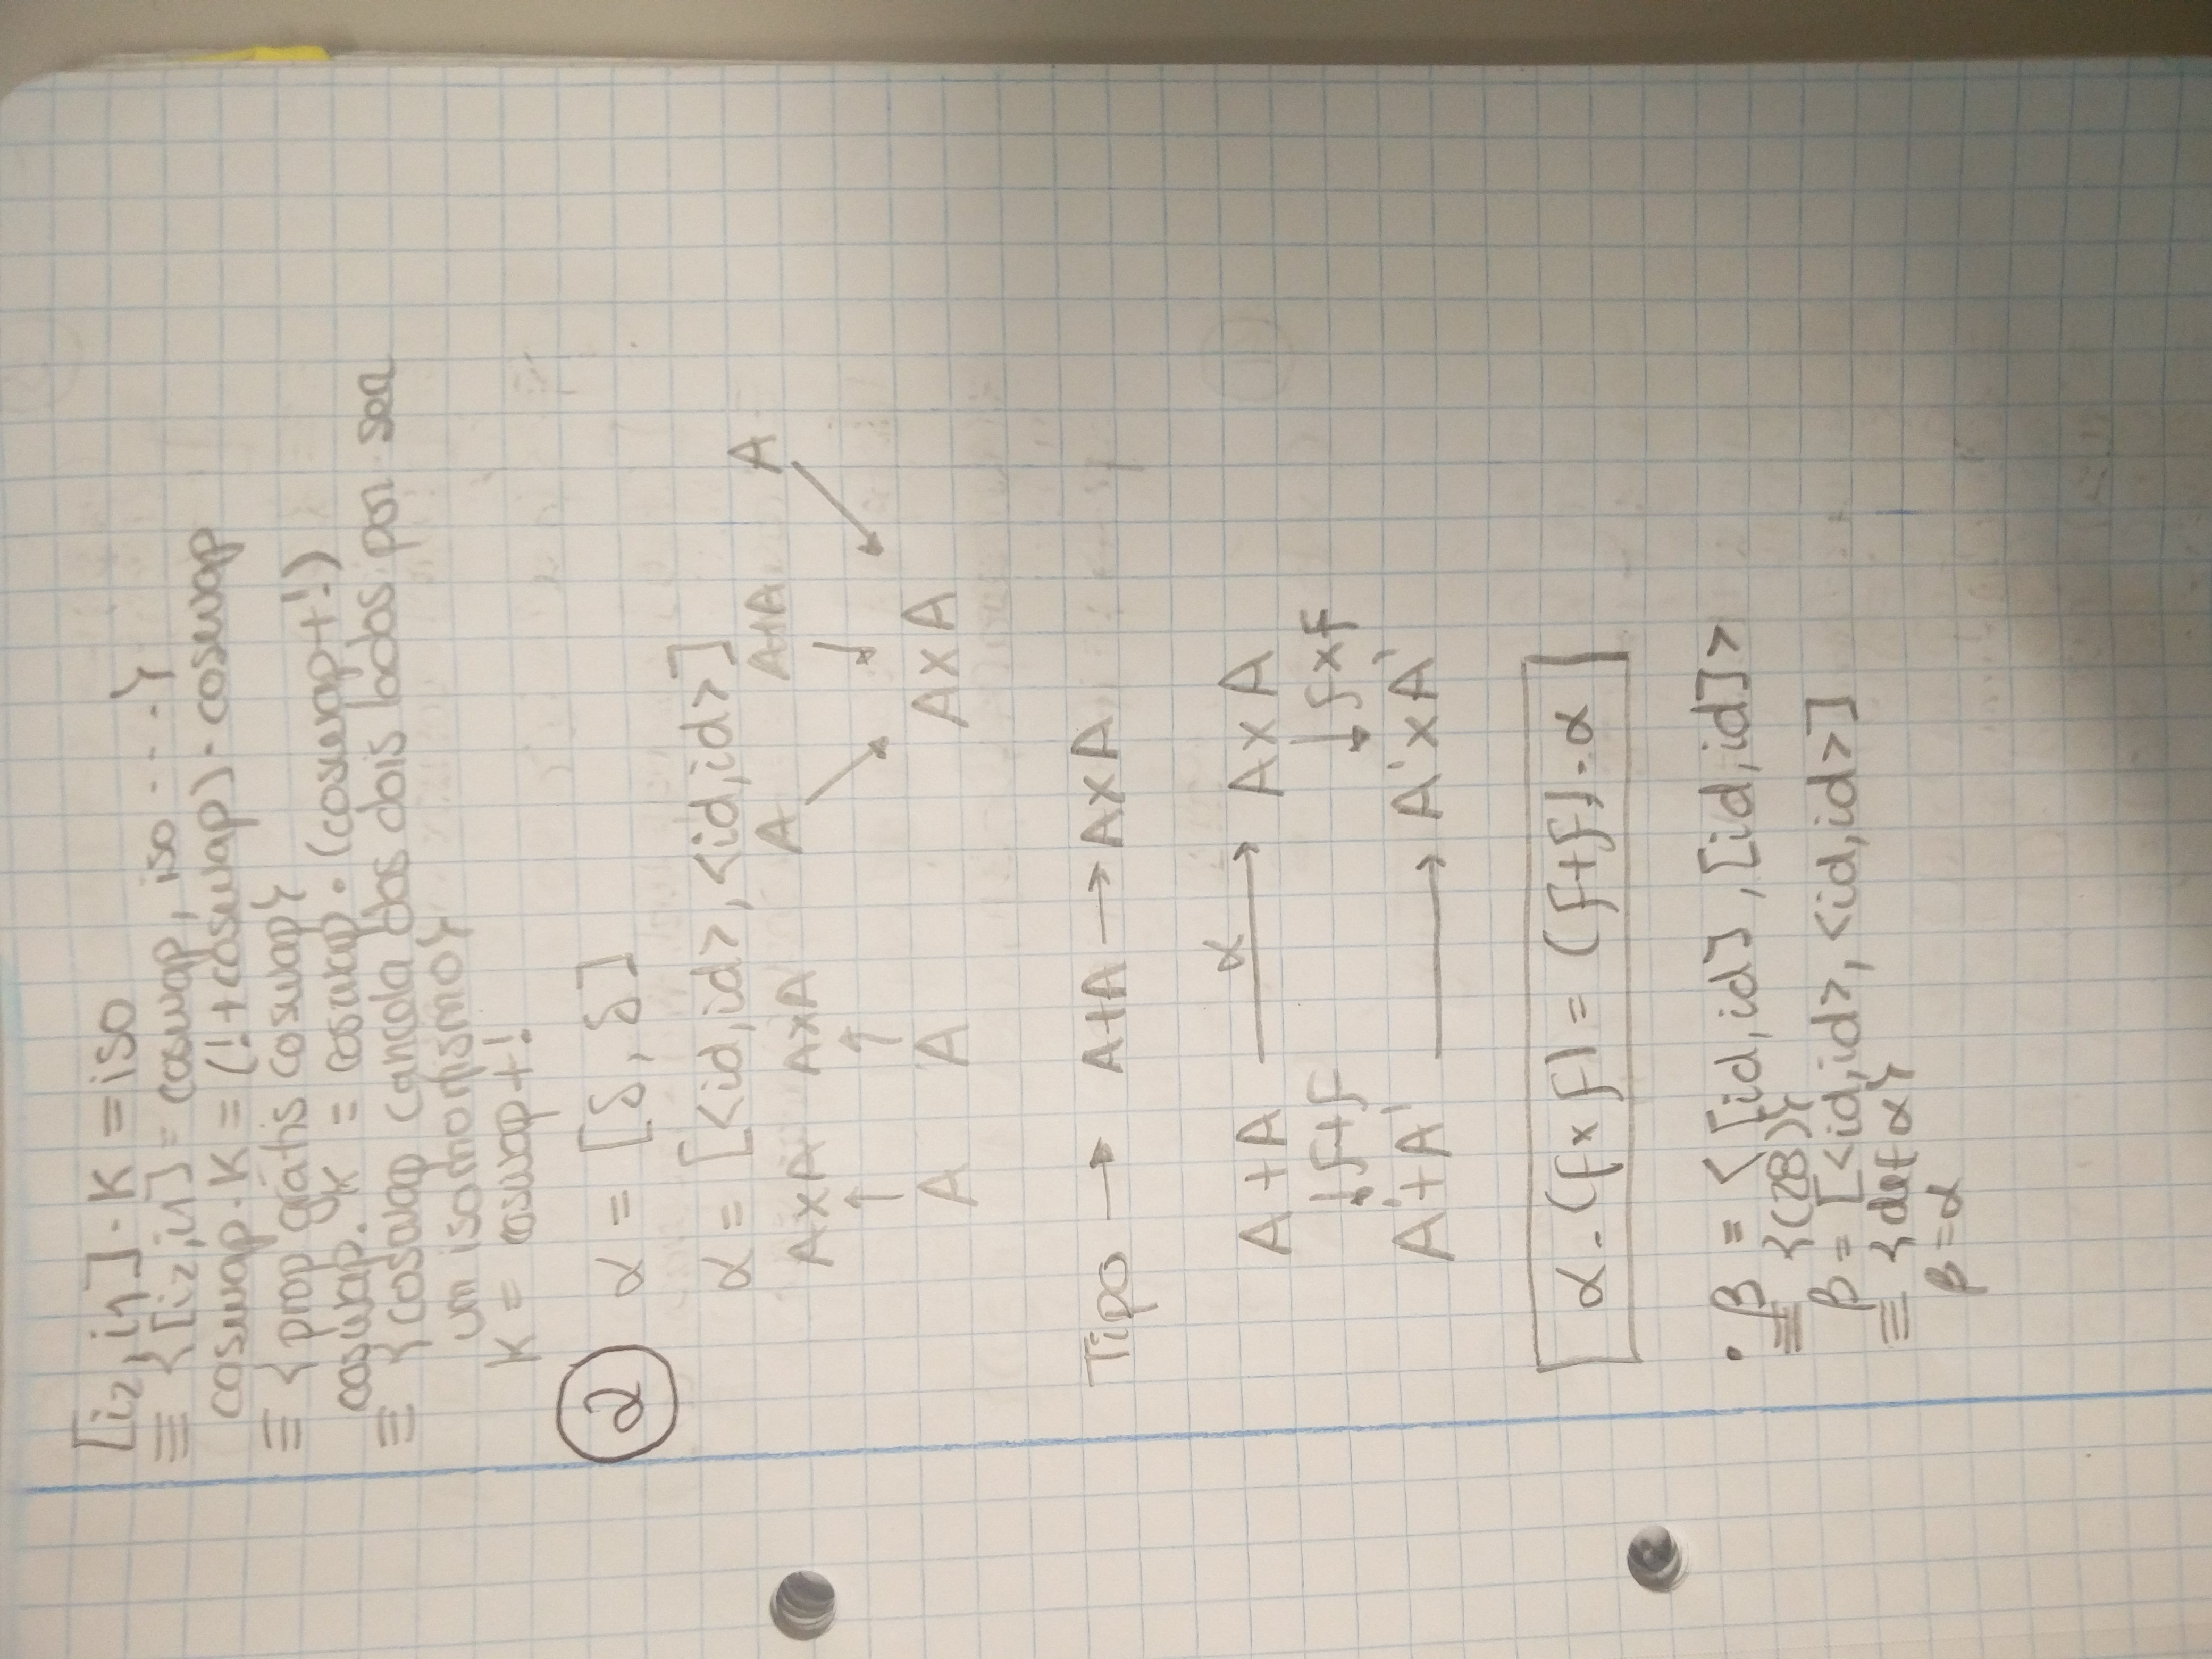 [i₂, i₁] · K = iso
≡ {[i₂, i₁] = coswap, iso ---}
coswap · K = (! + coswap) · coswap
≡ {prop grátis coswap}
coswap. K = coswap · (coswap + !)
≡ {coswap cancela dos dois lados por ser
um isomorfismo}
K = coswap + !
② α = [δ, δ]
α = [<id, id>, <id, id>]
A×A A×A A A+A A
↑ ↑ ↘ ↓ ↙
A A A×A
Tipo → A+A → A×A
α
A + A → A × A
↓ f+f ↓ f×f
A' + A' → A' × A'
α · (f × f) = (f + f) · α
• β = < [id, id], [id, id] >
≡ {(28)}
β = [<id, id>, <id, id>]
≡ {def α}
β = α